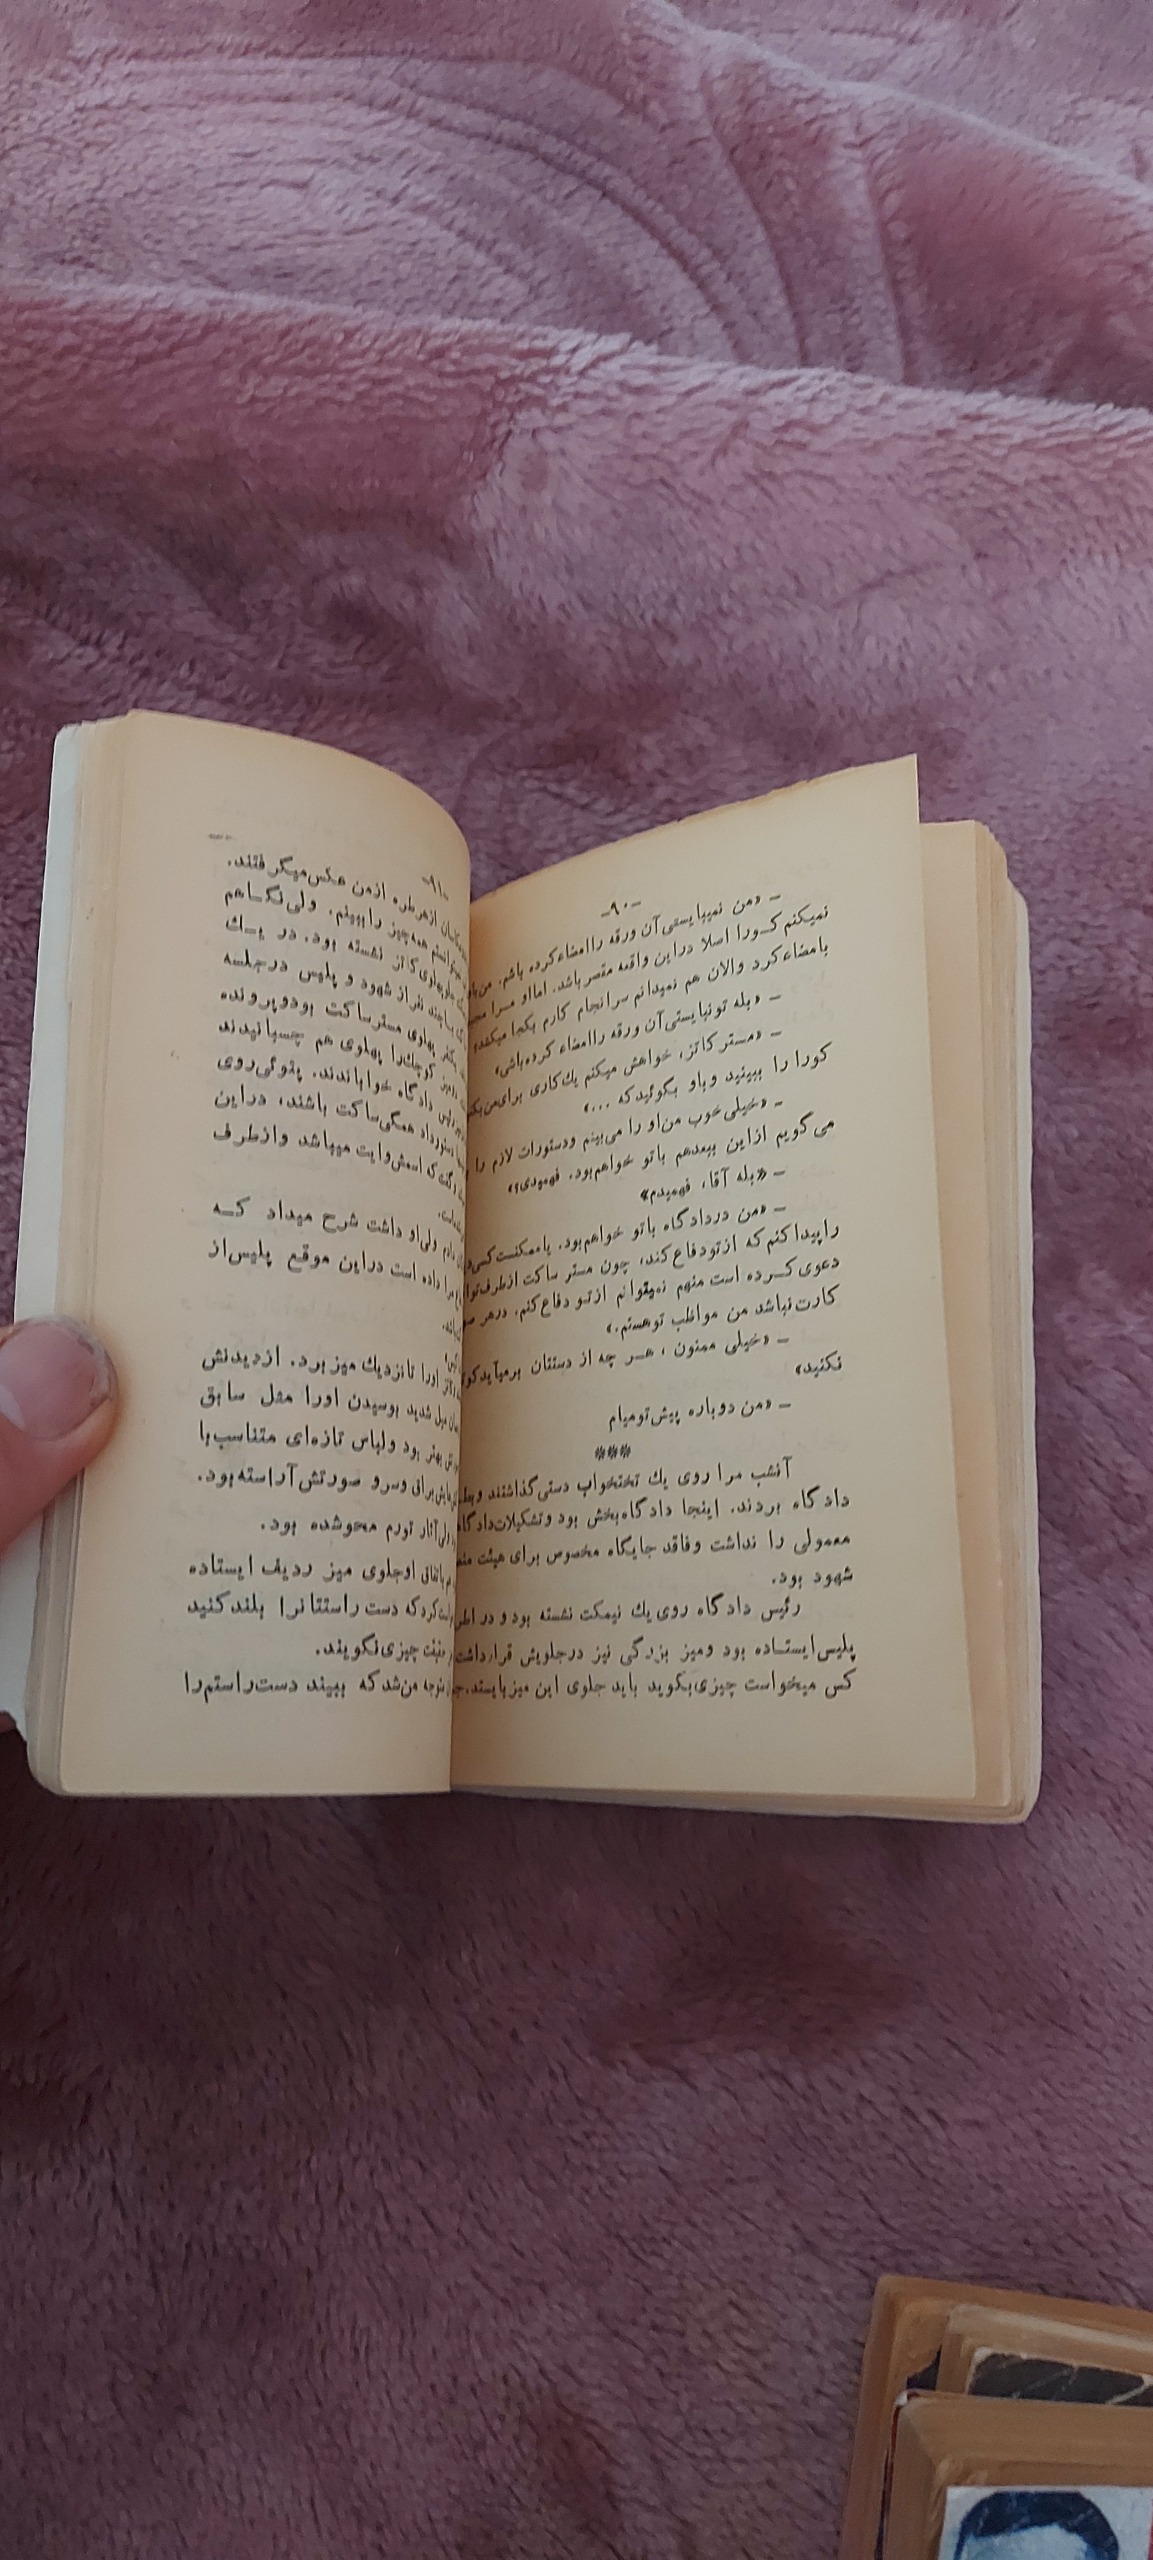 -۹۰-
- «من نمیبایستی آن ورقه را امضاء کرده باشم. من
نمیکنم کورا اصلا در این واقعه مقصر باشد. اما او مرا
بامضاء کرد والان هم نمیدانم سرانجام کارم بکجا میکشد»
- «بله تو نبایستی آن ورقه را امضاء کرده باشی»
- «مستر کاتز، خواهش میکنم یك کاری برای من
کورا را ببینید و باو بگوئید که ...»
- «خیلی خوب من او را می بینم ودستورات لازم را
می گویم از این ببعدهم با تو خواهم بود. فهمیدی؟»
- «بله آقا، فهمیدم»
- «من در دادگاه با تو خواهم بود. یا ممکنست کسی
را پیدا کنم که از تو دفاع کند، چون مستر ساکت از طرف تو
دعوی کرده است منهم نمیتوانم از تو دفاع کنم. در هر
کارت نباشد من مواظب تو هستم.»
- «خیلی ممنون ، هر چه از دستتان برمیآید
نکنید»
- «من دوباره پیش تو میام
***
آنشب مرا روی یك تختخواب دستی گذاشتند و
دادگاه بردند. اینجا دادگاه بخش بود و تشکیلات دادگاه
معمولی را نداشت وفاقد جایگاه مخصوص برای هیئت
شهود بود.
رئیس دادگاه روی یك نیمکت نشسته بود و در
پلیس ایستاده بود ومیز بزرگی نیز درجلویش قرار داشت
کس میخواست چیزی بگوید باید جلوی این میز بایستد.
-۹۱-
از هر طره از من عکس میگرفتند.
میتوانستم همه چیز را ببینم. ولی نگاهم
پهلوی کاتز نشسته بود. در یك
چند نفر از شهود و پلیس در جلسه
پهلوی مستر ساکت بود و پرونده
میز کوچك را پهلوی هم چسبانیدند
دادگاه خواباندند. پتوئی روی
دستور داد همگی ساکت باشند، در این
گفت که اسمش وایت میباشد و از طرف
است.
دادم ولی او داشت شرح میداد که
مرا داده است در این موقع پلیس از
اورا تا نزدیك میز برد. از دیدنش
میل شدید بوسیدن اورا مثل سابق
بهتر بود ولباس تازه ای متناسب با
برانی وسر و صورتش آراسته بود.
ولی آثار تورم محو شده بود.
باتفاق او جلوی میز ردیف ایستاده
کرد که دست راستتان را بلند کنید
چیزی نگویند.
متوجه من شد که ببیند دست راستم را